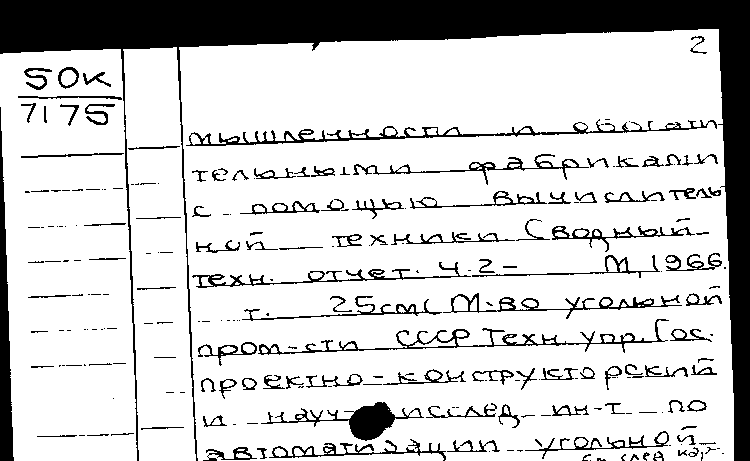 2
50к
7175
мышленности и обогати-
тельными фабриками
с помощью вычислитель
ной техники (Сводный
техн. отчет. Ч.2- М, 1966.
т. 25см (М-во угольной
пром-сти СССР Техн упр. Гос.
проектно-конструкторский
и науч- исслед ин-т по
автоматизации угольной
см след кар.